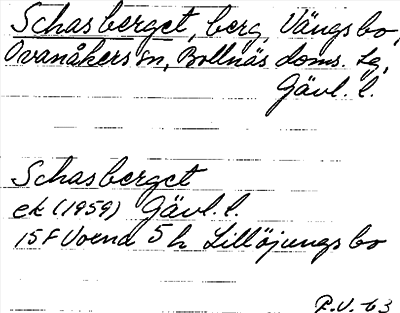 Schasberget, berg, Vängsbo,
Ovanåkers sn, Bollnäs doms. lg,
Gävl. l.
Schasberget
ek (1959) Gävl. l.
15F Voxna 5 h Lillöjungsbo
P.V. 63